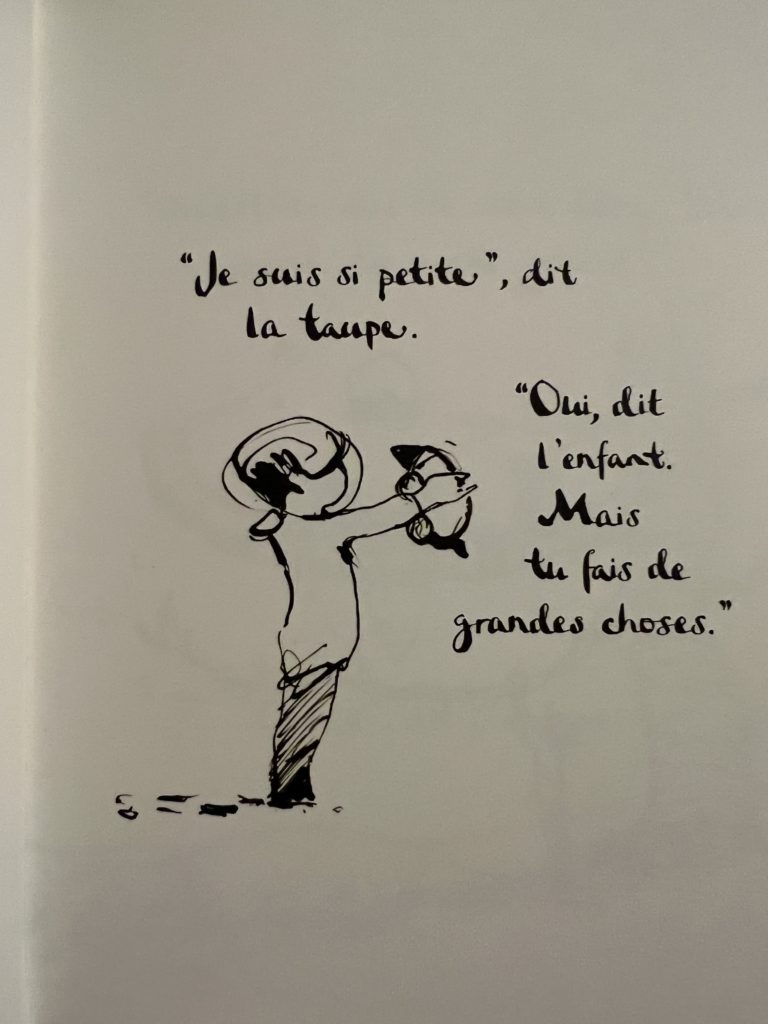 “Je suis si petite”, dit
la taupe.
“Oui, dit
l'enfant.
Mais
tu fais de
grandes choses.”